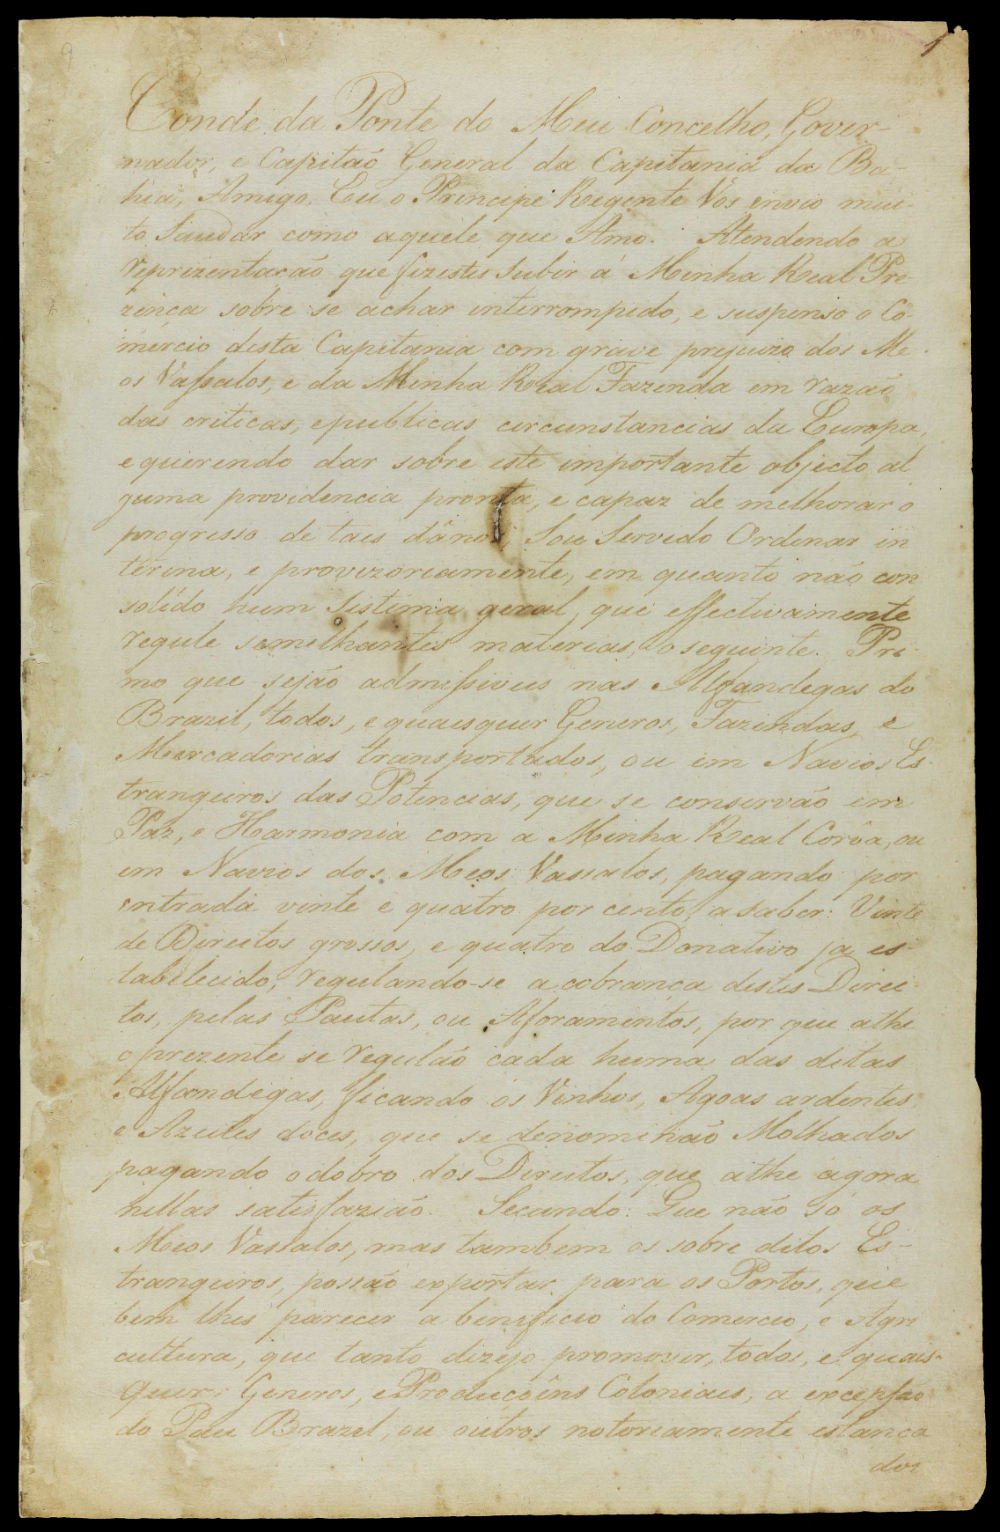 9
1
Conde da Ponte do Meu Concelho, Gover-
nador, e Capitaõ General da Capitania da Ba-
hia, Amigo. Eu o Principe Regente Vos envio mui-
to Saudar como aquele que Amo. Atendendo a
reprizentacaõ que fizestes subir á Minha Real Pre
zença sobre se achar interrompido, e suspenso o Co-
mercio desta Capitania com grave prejuizo dos Me-
os Vaſsalos, e da Minha Real Fazenda em razaõ
das criticas, epublicas circunstancias da Europa,
e querendo dar sobre este importante objecto al
guma providencia pronta, e capaz de melhorar o
progresso de taes dânos: Sou Servido Ordenar in
terina, e provizoriamente, em quanto não con
solido hum Sistima geral, que effectivamente
regule samelhantes materias, o seguinte. Pri-
mo que sejão admiſsiveis nas Alfandegas do
Brazil, todos, e quaesquer Generos, Fazendas, e
Mercadorias transportados, ou em Navios Es-
trangeiros das Potencias, que se conservão em
Paz, e Harmonia com a Minha Real Corôa, ou
em Navios dos Meos Vassalos, pagando por
entrada vinte e quatro por cento, a saber: Vinte
de Direitos grossos, e quatro do Donativo ja es-
tabelecido, regulando-se a cobrança destes Direi-
tos, pelas Pautas, ou Aforamentos, por que athe
o prezente se regulão cada huma das ditas
Alfandegas, ficando os Vinhos, Agoas ardentes,
e Azeites doces, que se denominão Molhados
pagando o dobro dos Direitos, que athe agora
nellas satisfazião. Secundo: Que não só os
Meos Vassalos, mas tambem os sobre ditos Es-
trangeiros, possão exportar para os Portos, que
bem lhes parecer a beneficio do Comercio, e Agri
cultura, que tanto dezejo promover, todos, e quais-
quer: Generos, e Producoẽns Coloniaes, a excepſão
do Pau Brazil, ou outros notoriamente estanca
dos